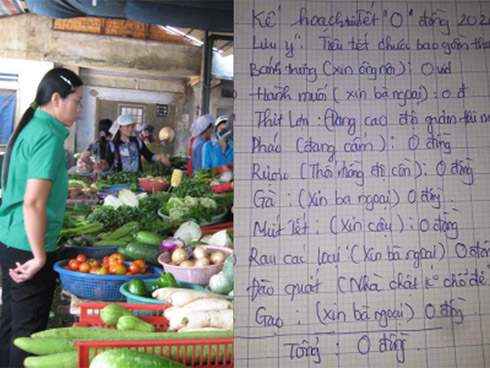 Kế hoạch tiêu Tết "0" đồng 202
Lưu ý: Tiêu tết chưa bao gồm
Bánh chưng (xin ông nội): 0 vnđ
Hành muối (xin bà ngoại): 0 đ
Thịt lợn: (đang cao) để giảm
Pháo (đang cấm): 0 đồng
Rượu (Thổi nồng độ cồn): 0 đồng
Gà: (xin bà ngoại) 0 đồng
Mứt Tết: (xin cậu): 0 đồng
Rau các loại: (xin bà ngoại) 0 đồn
Đào quất (Nhà chật k° chỗ để
Gạo: (xin bà ngoại) 0 đồng
Tổng: 0 đồng.